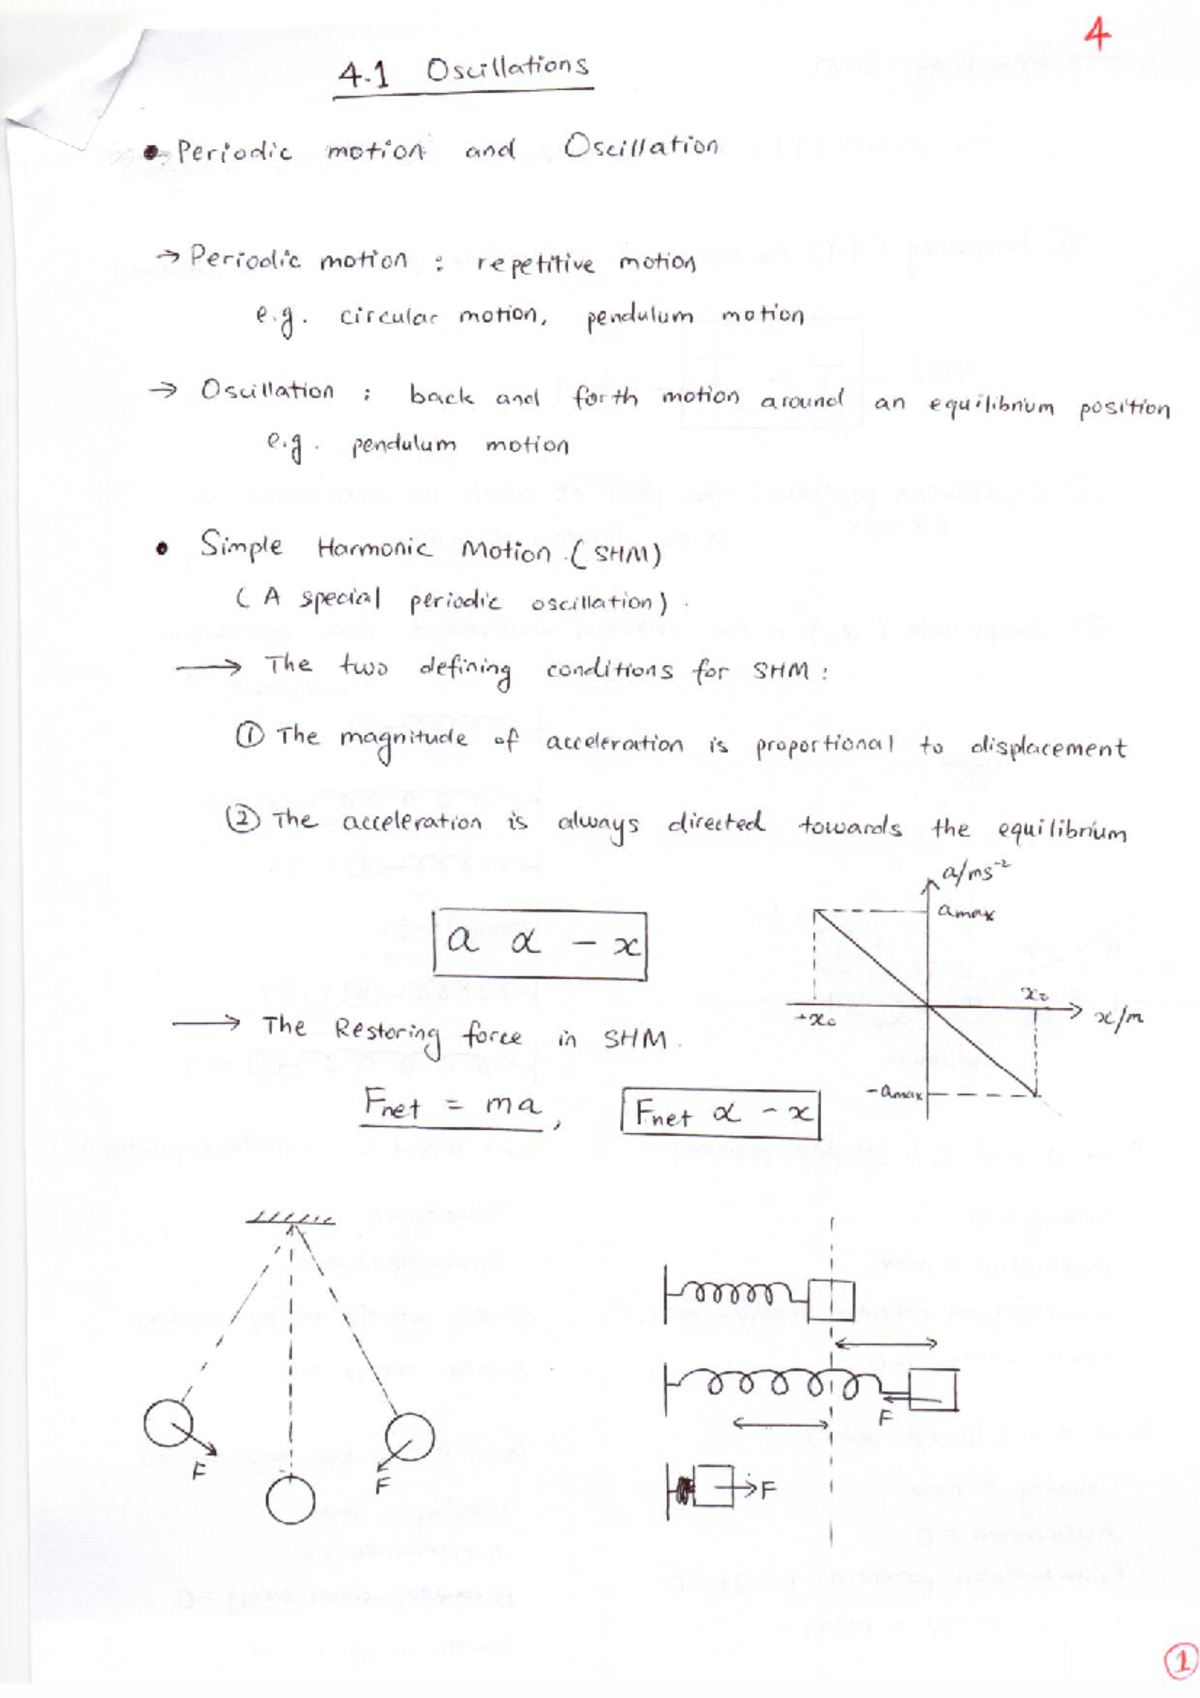 4
4.1 Oscillations
• Periodic motion and Oscillation
→ Periodic motion : repetitive motion
e.g. circular motion, pendulum motion
→ Oscillation : back and forth motion around an equilibrium position
e.g. pendulum motion
• Simple Harmonic Motion (SHM)
(A special periodic oscillation).
→ The two defining conditions for SHM :
① The magnitude of acceleration is proportional to displacement
② The acceleration is always directed towards the equilibrium
a/ms⁻²
a max
a α - x
x₀
-x₀
x/m
→ The Restoring force in SHM.
-amax
Fnet = ma, Fnet α - x
F
F
F
F
1